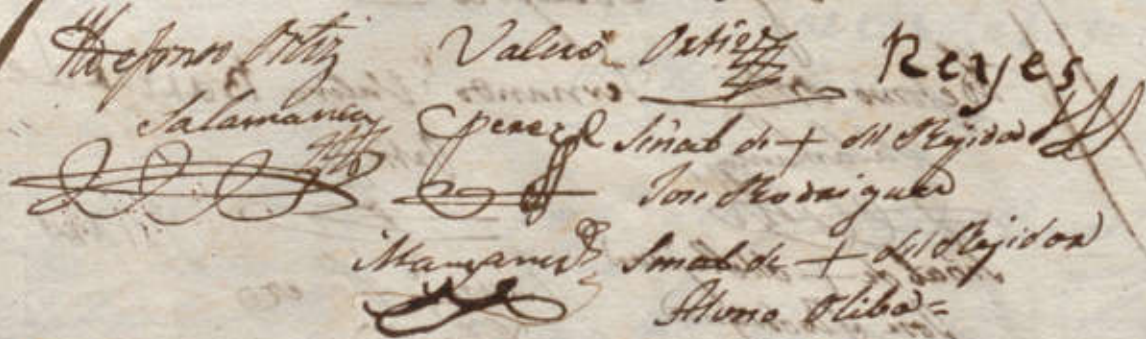 Ildefonso Ortiz Valerio Ortiz Reyes
Salamanca Perez Señal de + del Rejidor
Jose Rodriguez
Manzanedo Señal de + del Rejidor
Oliba =